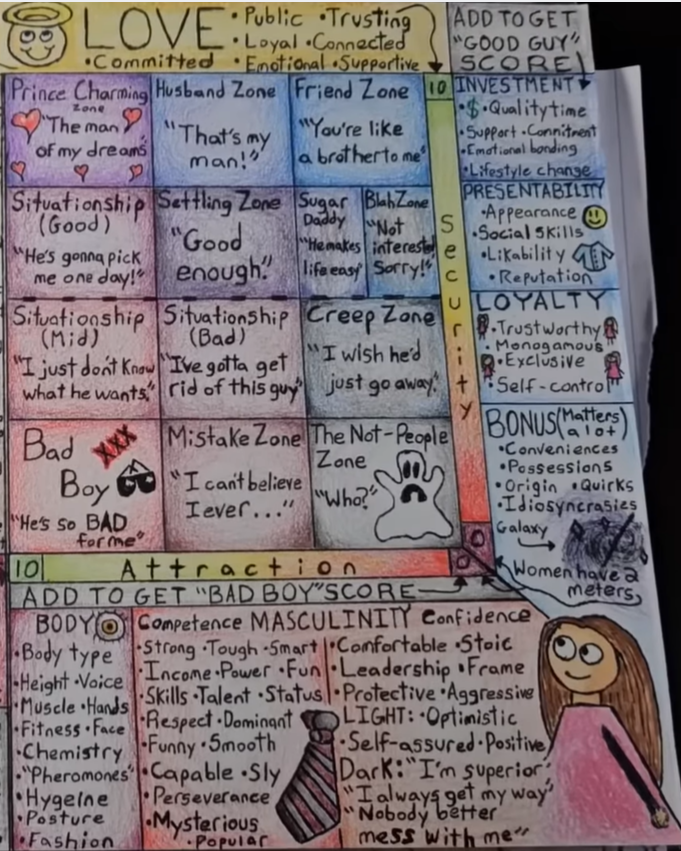 LOVE
• Public • Trusting
• Loyal • Connected
• Committed • Emotional • Supportive
ADD TO GET
"GOOD GUY"
SCORE!
Prince Charming
zone
"The man
of my dreams"
Husband Zone
"That's my
man!"
Friend Zone
"You're like
a brother to me"
10
Security
INVESTMENT
• $ • Quality time
• Support • Commitment
• Emotional bonding
• Lifestyle change
Situationship
(Good)
"He's gonna pick
me one day!"
Settling Zone
"Good
enough."
Sugar
Daddy
"He makes
life easy"
Blah Zone
"Not
interested
Sorry!"
PRESENTABILITY
• Appearance
• Social Skills
• Likability
• Reputation
Situationship
(Mid)
"I just don't know
what he wants."
Situationship
(Bad)
"I've gotta get
rid of this guy"
Creep Zone
"I wish he'd
just go away."
LOYALTY
• Trustworthy
• Monogamous
• Exclusive
• Self-control
Bad XXX
Boy
"He's so BAD
for me"
Mistake Zone
"I can't believe
I ever..."
The Not-People
Zone
"Who?"
BONUS (Matters
a lot)
• Conveniences
• Possessions
• Origin • Quirks
• Idiosyncrasies
Galaxy
Women have 2
meters
10 Attraction 0
0
ADD TO GET "BAD BOY" SCORE
BODY
• Body type
• Height • Voice
• Muscle • Hands
• Fitness • Face
• Chemistry
• "Pheromones"
• Hygeine
• Posture
• Fashion
Competence MASCULINITY Confidence
• Strong • Tough • Smart
• Income • Power • Fun
• Skills • Talent • Status
• Respect • Dominant
• Funny • Smooth
• Capable • Sly
• Perseverance
• Mysterious
• Popular
• Comfortable • Stoic
• Leadership • Frame
• Protective • Aggressive
LIGHT: • Optimistic
• Self-assured • Positive
Dark: "I'm superior"
"I always get my way"
"Nobody better
mess with me"